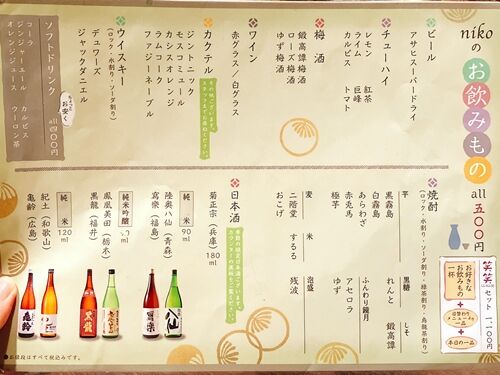 nikoのお飲みもの all 五〇〇円
笑笑セット 一一〇〇円
お好きなお飲みもの一杯
+
日替わりメニューより一品
+
本日の一品
ビール
アサヒスーパードライ
チューハイ
レモン 紅茶
ライム 巨峰
カルピス トマト
梅酒
鍛高譚梅酒
ローズ梅酒
ゆず梅酒
ワイン
赤グラス/白グラス
カクテル
その他ございます。スタッフまでお尋ねください。
ジントニック
モスコミュール
カシスオレンジ
ラムコーク
ファジーネーブル
ウイスキー
(ロック・水割り・ソーダ割り)
デュワーズ
ジャックダニエル
ソフトドリンク
ちょっとお安く
all 四〇〇円
コーラ カルピス
ジンジャーエール ウーロン茶
オレンジジュース
焼酎
(ロック・水割り・ソーダ割り・緑茶割り・烏龍茶割り)
芋 黒糖 しそ
黒霧島 れんと 鍛高譚
白霧島
あらわざ ふんわり鏡月
赤兎馬 アセロラ
極子 ゆず
麦 米 泡盛
二階堂 するる 残波
おこげ
日本酒
季節の地酒も各種ございます。カウンターの黒板をご覧ください。
菊正宗(兵庫) 180ml
純米 90ml
陸奥八仙(青森)
寫樂(福島)
純米吟醸 90ml
鳳凰美田(栃木)
黒龍(福井)
純米 120ml
紀土(和歌山)
亀齢(広島)
亀齢
黒龍
寫楽
八仙
●お値段はすべて税込みです。